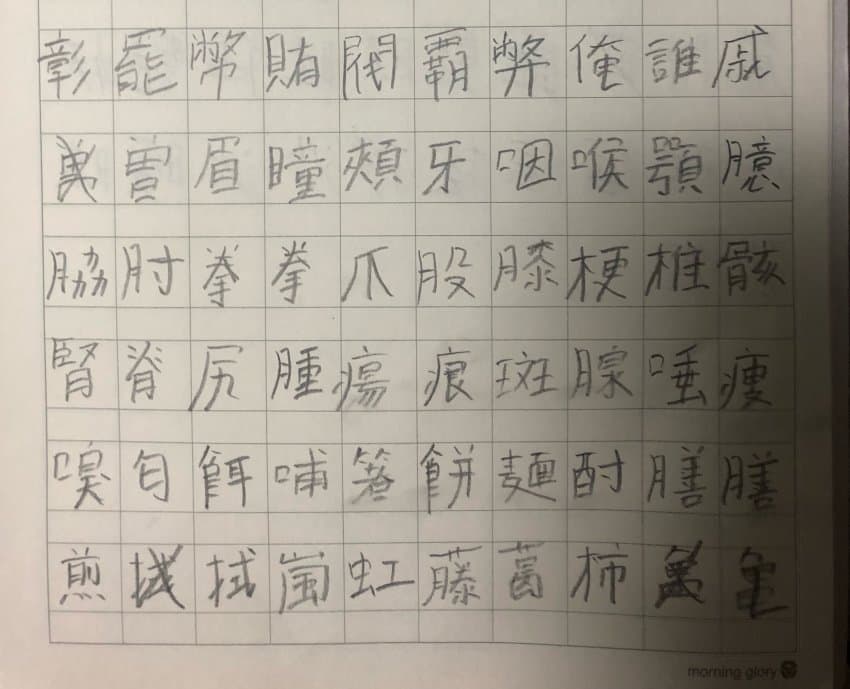 彰罷幣賄閥覇弊俺誰戚
曽眉瞳頰牙咽喉顎臆
脇肘拳拳爪股膝梗椎骸
腎脊尻腫瘍痕斑腺唾痩
嗅匂餌哺箸餅麺酎膳膳
煎拭嵐虹藤葛柿
morning glory